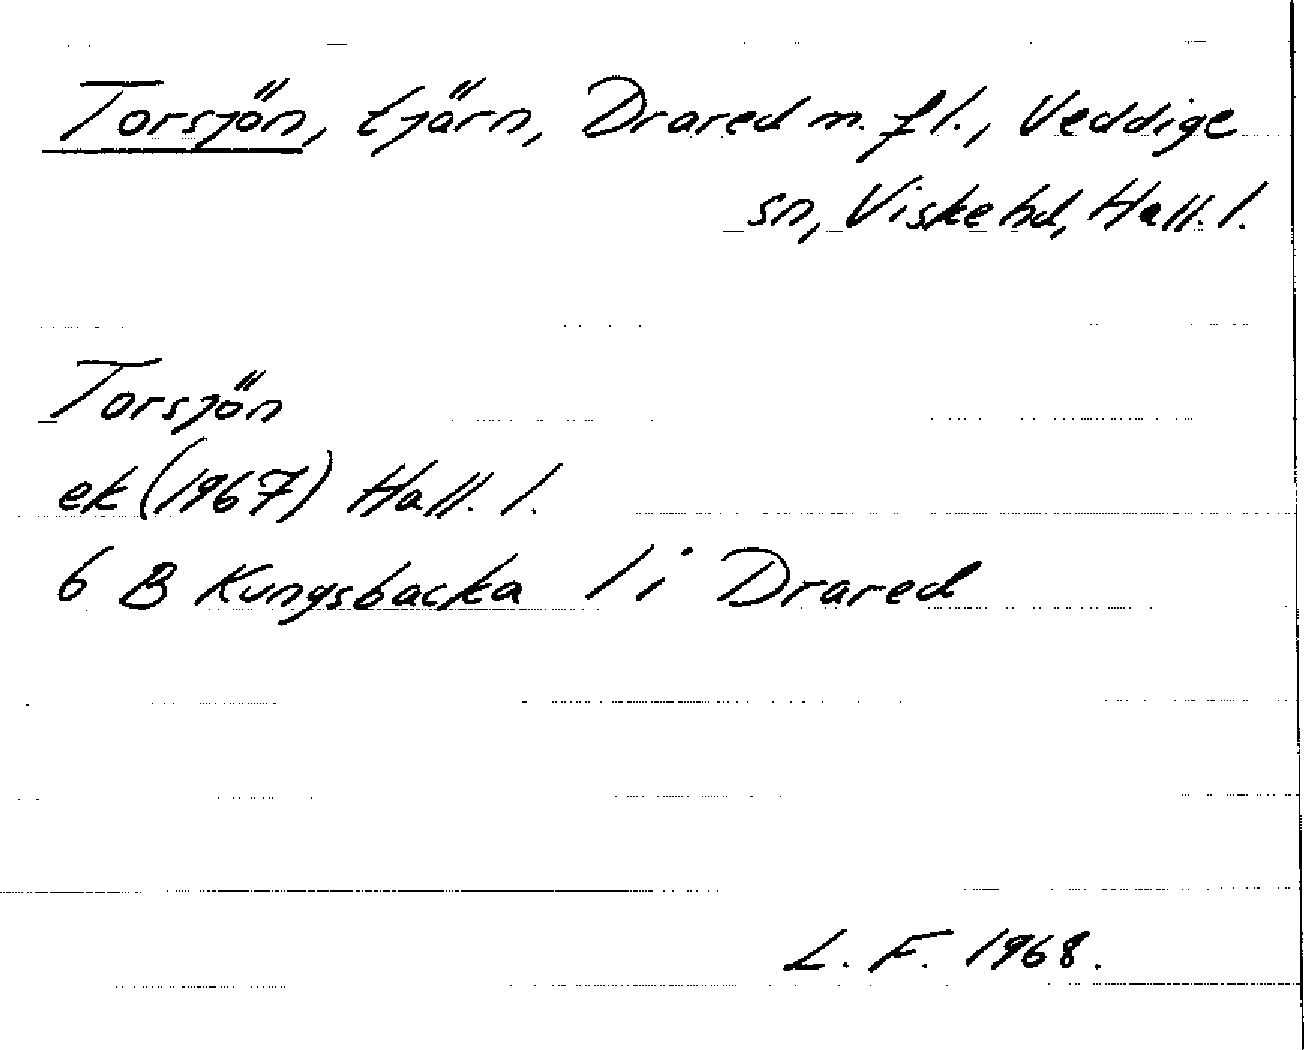 Torsjön, tjärn, Drared m.fl., Veddige
sn, Viske hd, Hall.l.
Torsjön
ek (1967) Hall. l.
6 B Kungsbacka 1i Drared
L. F. 1968.